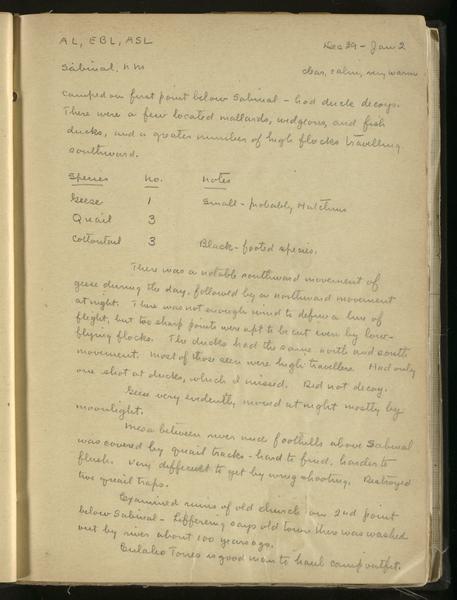 AL, EBL, ASL Dec 29 - Jan 2
Sabinal, NM clear, calm, very warm
Camped on first point below Sabinal - had duck decoys.
There were a few located mallards, widgeons, and fish
ducks, and a greater number of high flocks travelling
southward.
Species No. Notes
Geese 1 Small - probably Hutchins
Quail 3
Cottontail 3 Black-footed species.
There was a notable southward movement of
geese during the day, followed by a northward movement
at night. There was not enough wind to define a line of
flight, but the sharp points were apt to be cut even by low-
flying flocks. The ducks had the same north and south
movement. Most of those seen were high travellers. Had only
one shot at ducks, which I missed. Did not decoy.
Geese very evidently moved at night mostly by
moonlight.
Mesa between river and foothills above Sabinal
was covered by quail tracks - hard to find, harder to
flush. Very difficult to get by wing shooting. Destroyed
five quail traps.
Examined ruins of old church on 2nd point
below Sabinal - says old town there was washed
out by river about 100 years ago.
Eulalio Torres is good man to haul camp outfit.